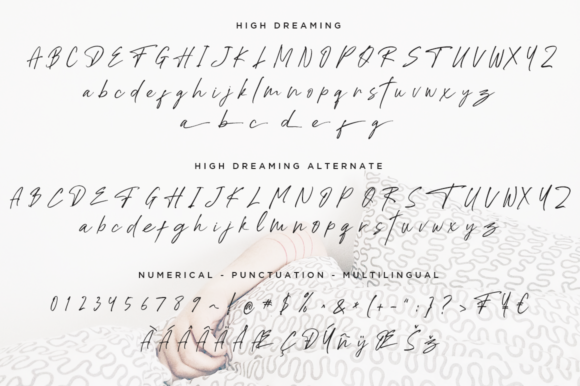 HIGH DREAMING
A B C D E F G H I J K L M N O P Q R S T U V W X Y Z
a b c d e f g h i j k l m n o p q r s t u v w x y z
a b c d e f g
HIGH DREAMING ALTERNATE
A B C D E F G H I J K L M N O P Q R S T U V W X Y Z
a b c d e f g h i j k l m n o p q r s t u v w x y z
NUMERICAL - PUNCTUATION - MULTILINGUAL
0 1 2 3 4 5 6 7 8 9 ~ ! @ # $ % & * ( + - " : } ? >
Ç Ð Ú ñ ÿ Œ Š ž